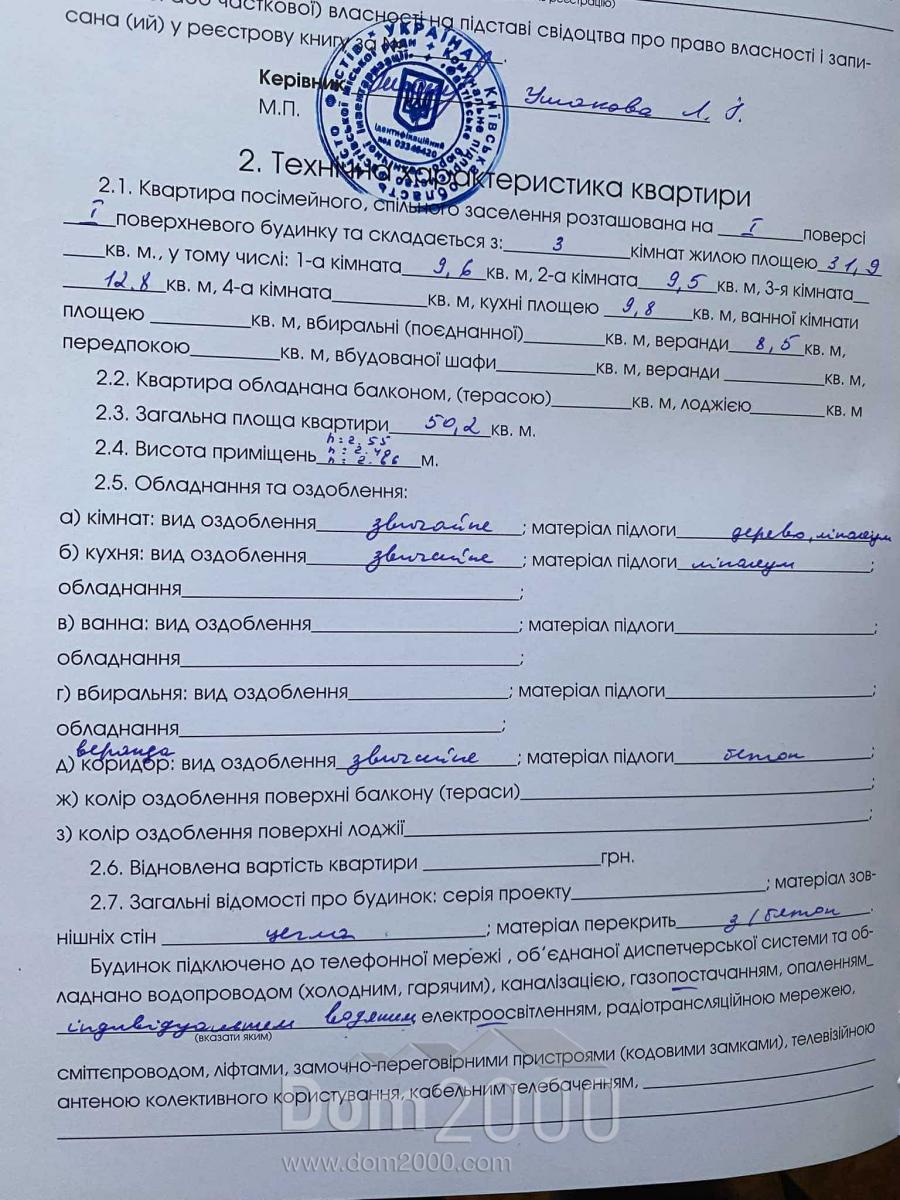 часткової) власності на підставі свідоцтва про право власності і запи-
сана (ий) у реєстрову книгу за №
Керівник Ушакова Л. І.
М.П.
УКРАЇНА КИЇВСЬКА ОБЛАСТЬ МІСТО
ідентифікаційний
код 03346420
2. Технічна характеристика квартири
2.1. Квартира посімейного, спільного заселення розташована на I поверсі
I поверхневого будинку та складається з: 3 кімнат жилою площею 31,9
кв. м., у тому числі: 1-а кімната 9,6 кв. м, 2-а кімната 9,5 кв. м, 3-я кімната
12.8 кв. м, 4-а кімната кв. м, кухні площею 9,8 кв. м, ванної кімнати
площею кв. м, вбиральні (поєднанної) кв. м, веранди 8,5 кв. м,
передпокою кв. м, вбудованої шафи кв. м, веранди кв. м,
2.2. Квартира обладнана балконом, (терасою) кв. м, лоджією кв. м
2.3. Загальна площа квартири 50,2 кв. м.
2.4. Висота приміщень h=2,55 м.
2.5. Обладнання та оздоблення:
а) кімнат: вид оздоблення звичайне ; матеріал підлоги дерево, ліполеум
б) кухня: вид оздоблення звичайне ; матеріал підлоги ліполеум ;
обладнання ;
в) ванна: вид оздоблення ; матеріал підлоги ;
обладнання ;
г) вбиральня: вид оздоблення ; матеріал підлоги ;
обладнання ;
веранда
д) коридор: вид оздоблення звичайне ; матеріал підлоги бетон ;
ж) колір оздоблення поверхні балкону (тераси) ;
з) колір оздоблення поверхні лоджії ;
2.6. Відновлена вартість квартири грн.
2.7. Загальні відомості про будинок: серія проекту ; матеріал зов-
нішніх стін цегла ; матеріал перекрить з/бетон .
Будинок підключено до телефонної мережі , об’єднаної диспетчерської системи та об-
ладнано водопроводом (холодним, гарячим), каналізацією, газопостачанням, опаленням
індивідуальнем водяним електроосвітленням, радіотрансляційною мережею,
(вказати яким)
сміттєпроводом, ліфтами, замочно-переговірними пристроями (кодовими замками), телевізійною
антеною колективного користування, кабельним телебаченням,
Dom2000
www.dom2000.com